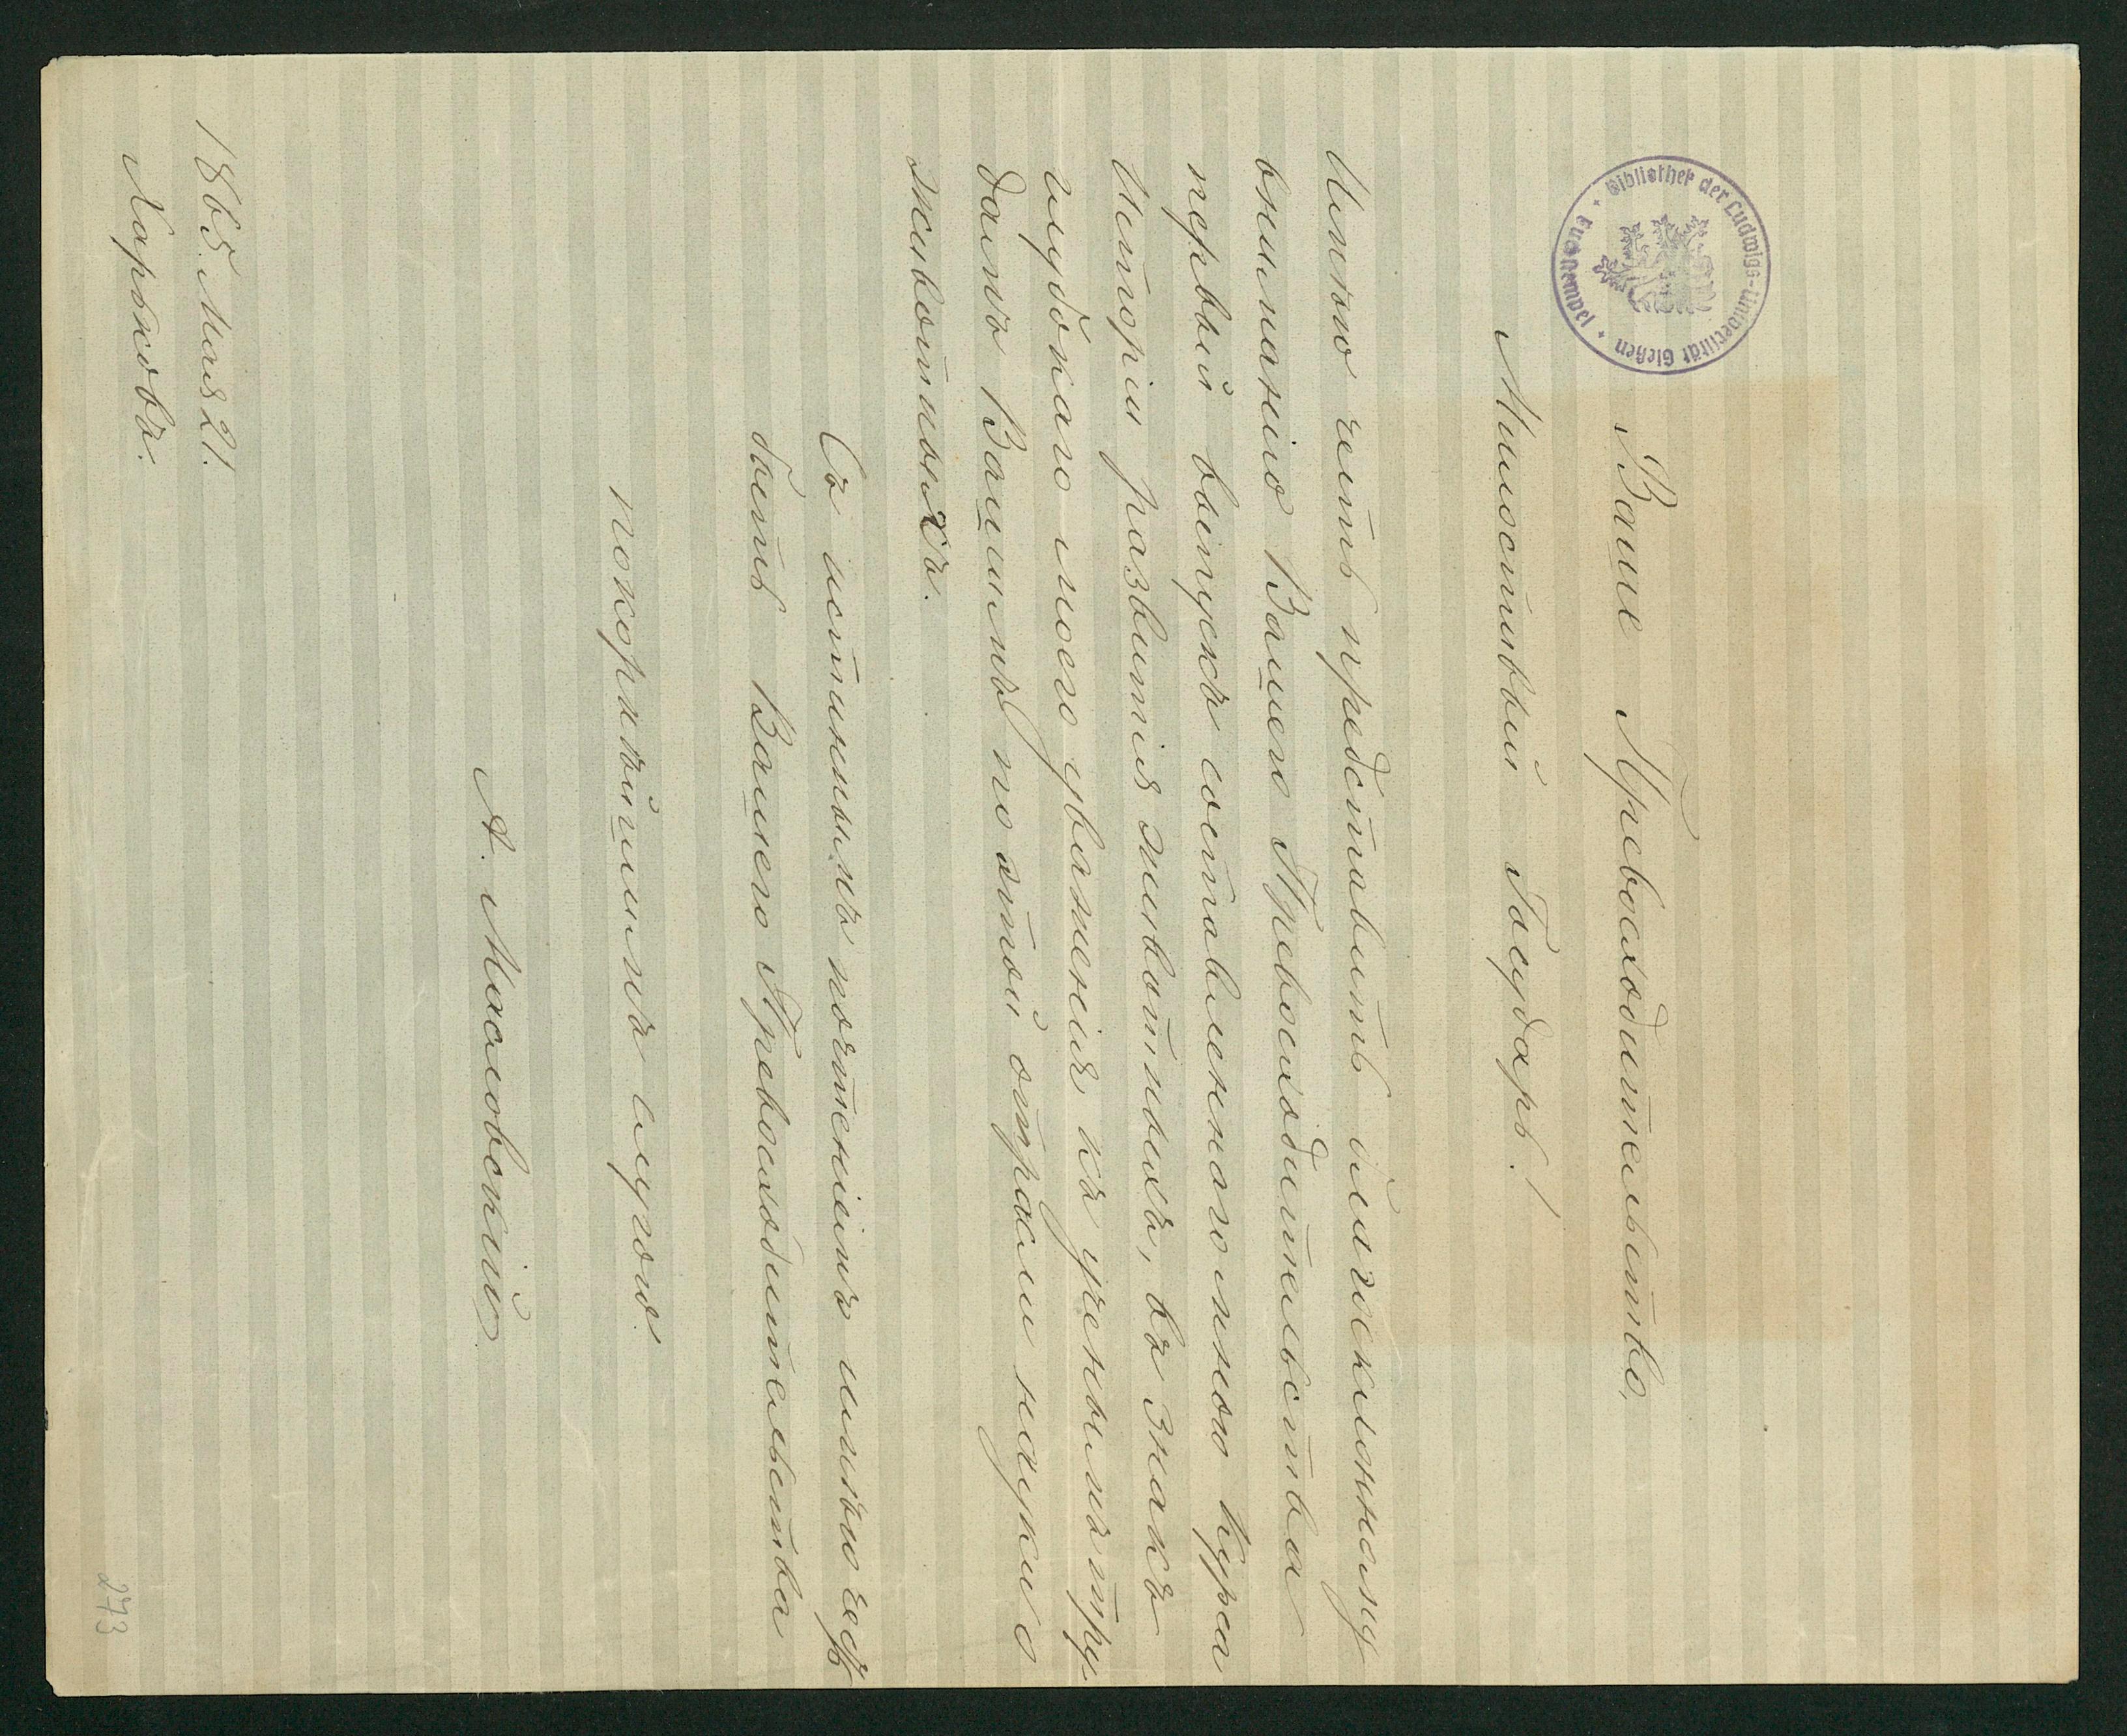 Bibliothek der Ludwigs-Universität Gießen
Ваше Превосходительство,
Милостивый Государь!
Имѣю честь представить благосклонному
вниманію Вашего Превосходительства
первый выпускъ составленнаго мною Курса
Исторіи развитія животныхъ, въ знакъ
глубокаго моего уваженія къ ученымъ тру-
дамъ Вашимъ по этой отрасли науки о
животныхъ.
Съ истиннымъ почтеніемъ имѣю честь
быть Вашего Превосходительства
покорнѣйшимъ слугою
А. Масловскій
1865. Мая 21.
Харьковъ.
273